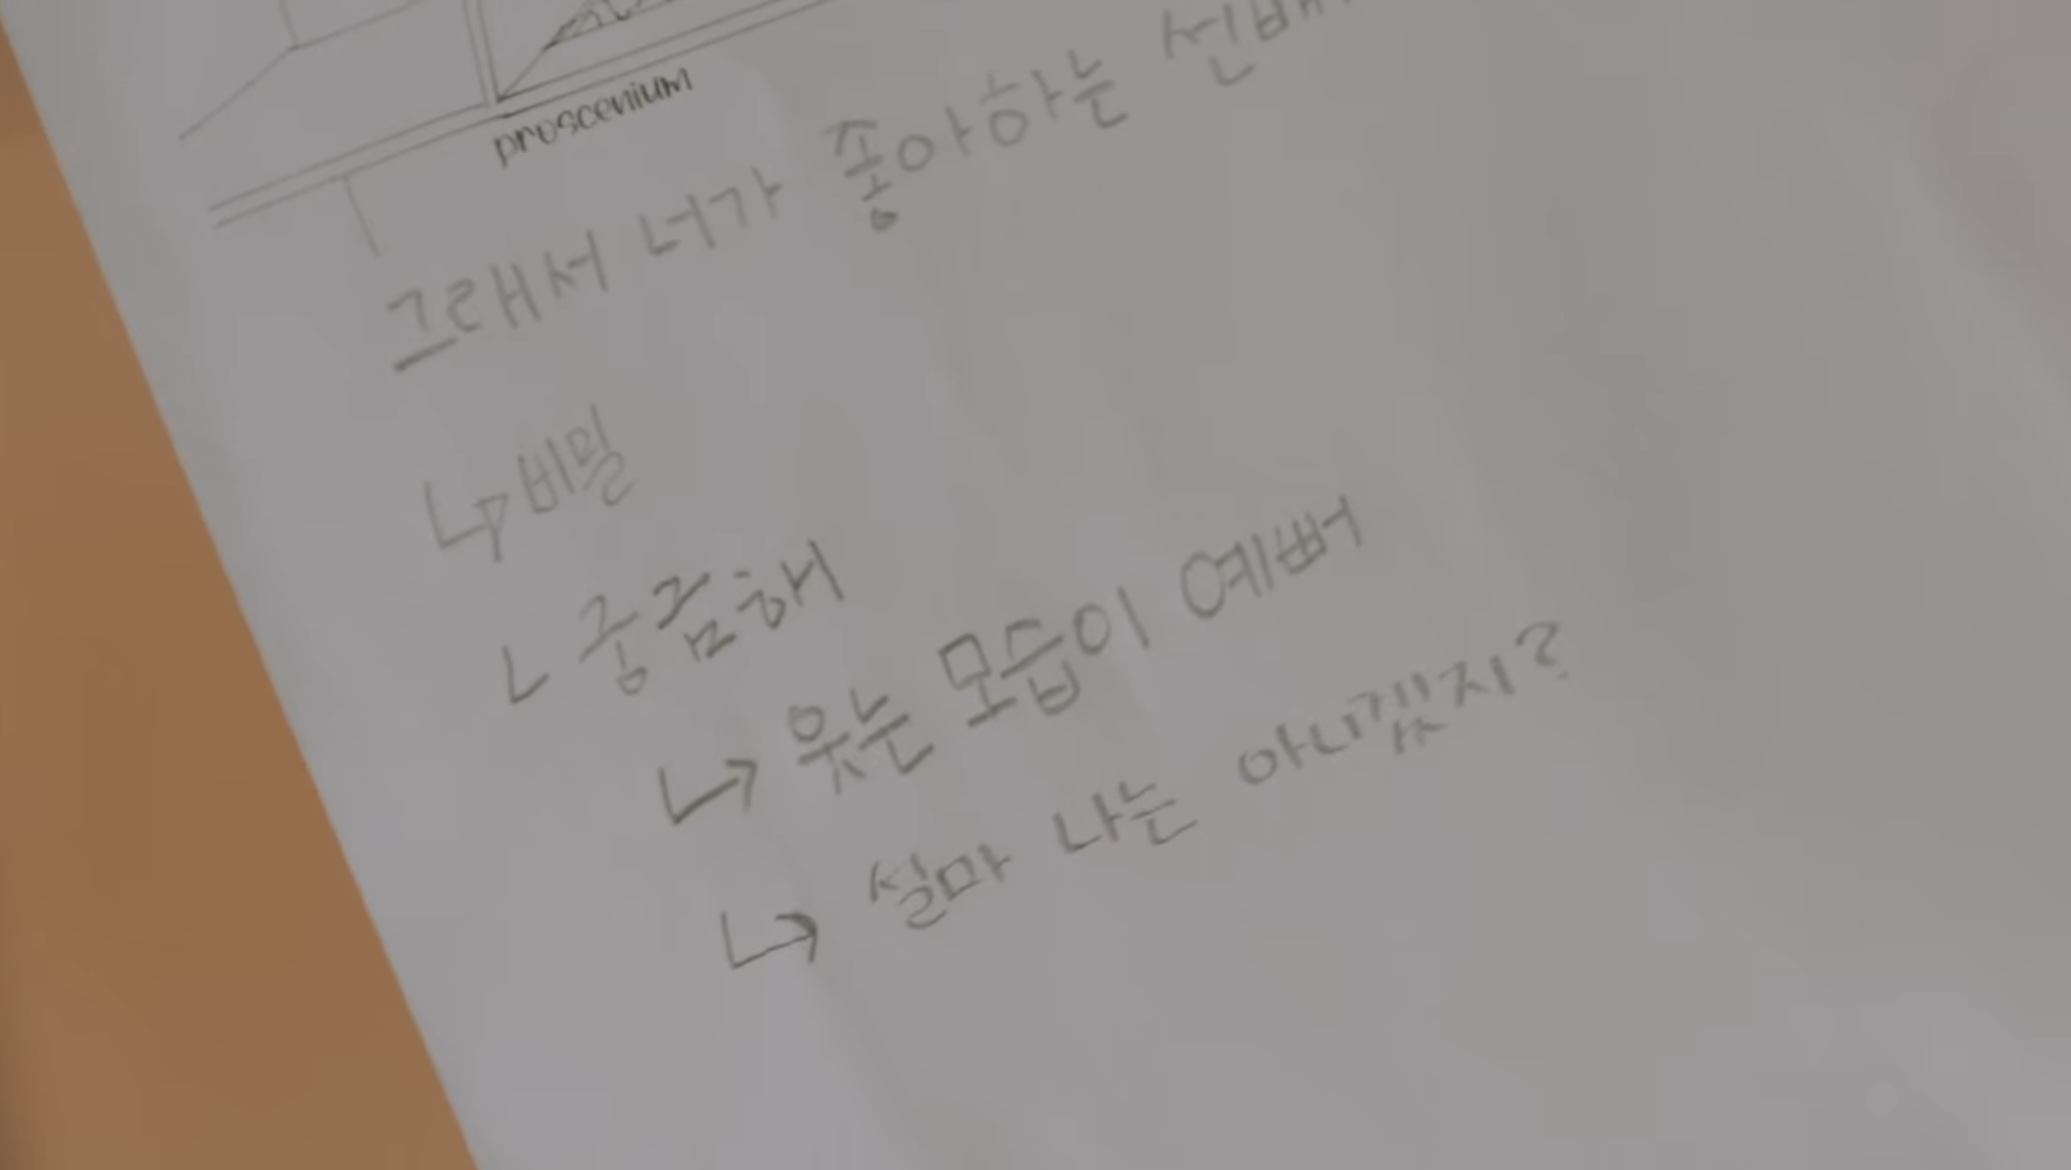 proscenium
그래서 너가 좋아하는 선배
↳ 비밀
ㄴ 궁금해
↳ 웃는 모습이 예뻐
↳ 설마 나는 아니겠지?